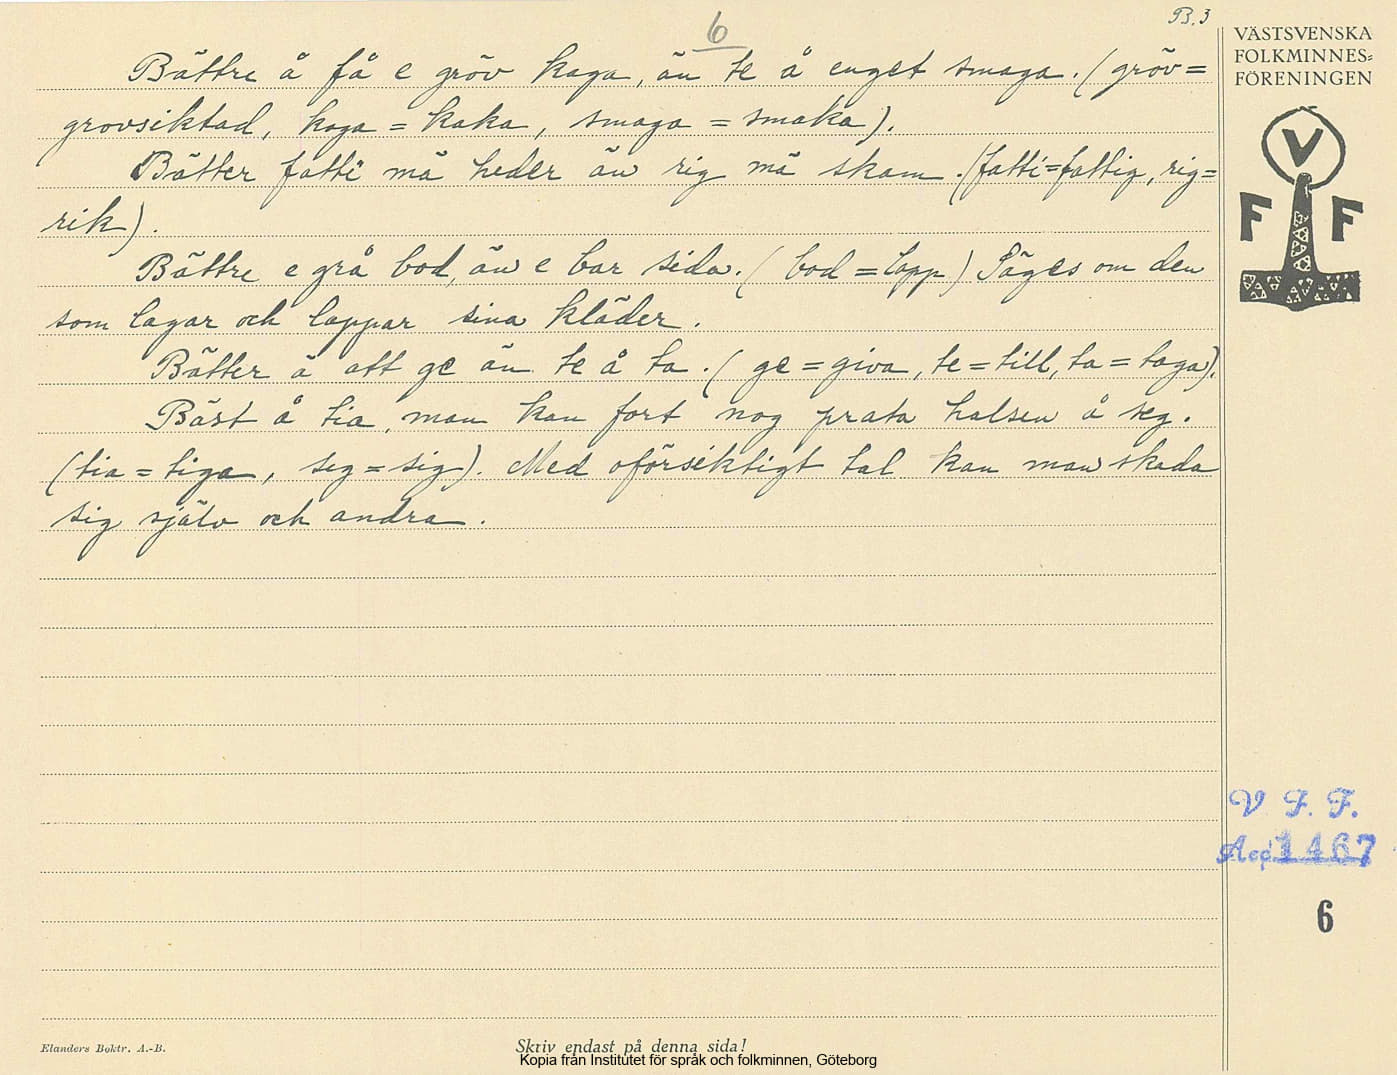 6
B. 3
Bättre å få e gröv kaga, än te å enget smaga. (gröv =
grovsiktad, kaga = kaka, smaga = smaka).
Bätter fatti mä heder än rig mä skam. (fatti = fattig, rig =
rik).
Bättre e grå bod, än e bar sida. (bod = lapp) Säges om den
som lagar och lappar sina kläder.
Bätter ä att ge än te å ta. (ge = giva, te = till, ta = taga).
Bäst å tia, man kan fort nog prata halsen å seg.
(tia = tiga, seg = sig). Med oförsiktigt tal kan man skada
sig själv och andra.
VÄSTSVENSKA
FOLKMINNES-
FÖRENINGEN
V
F F
V. F. F.
Acc. 1467
6
Elanders Boktr. A.-B.
Skriv endast på denna sida!
Kopia från Institutet för språk och folkminnen, Göteborg